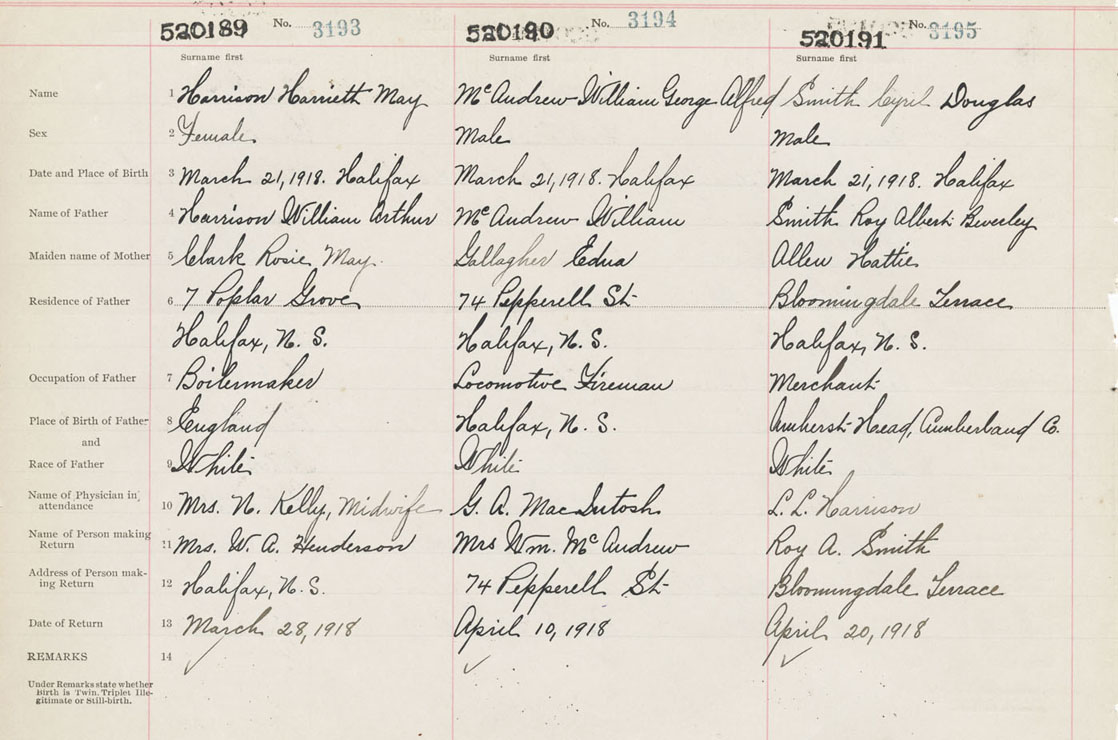 520189 No. 3193 520190 No. 3194 520191 No. 3195
Surname first Surname first Surname first
Name 1 Harrison Harrieth May McAndrew William George Alfred Smith Cyril Douglas
Sex 2 Female Male Male
Date and Place of Birth 3 March 21, 1918. Halifax March 21, 1918. Halifax March 21, 1918. Halifax
Name of Father 4 Harrison William Arthur McAndrew William Smith Roy Albert Beverley
Maiden name of Mother 5 Clark Rosie May. Gallagher Edna Allen Hattie
Residence of Father 6 7 Poplar Grove 74 Pepperell St. Bloomingdale Terrace
Halifax, N. S. Halifax, N. S. Halifax, N. S.
Occupation of Father 7 Boilermaker Locomotive Fireman Merchant
Place of Birth of Father 8 England Halifax, N. S. Amherst Head, Cumberland Co.
and
Race of Father 9 White White White
Name of Physician in attendance 10 Mrs. N. Kelly, Midwife G. A. MacIntosh L. L. Harrison
Name of Person making Return 11 Mrs. W. A. Henderson Mrs Wm. McAndrew Roy A. Smith
Address of Person mak-
ing Return 12 Halifax, N. S. 74 Pepperell St. Bloomingdale Terrace
Date of Return 13 March 28, 1918 April 10, 1918 April 20, 1918
REMARKS 14
Under Remarks state whether
Birth is Twin, Triplet Ille-
gitimate or Still-birth.